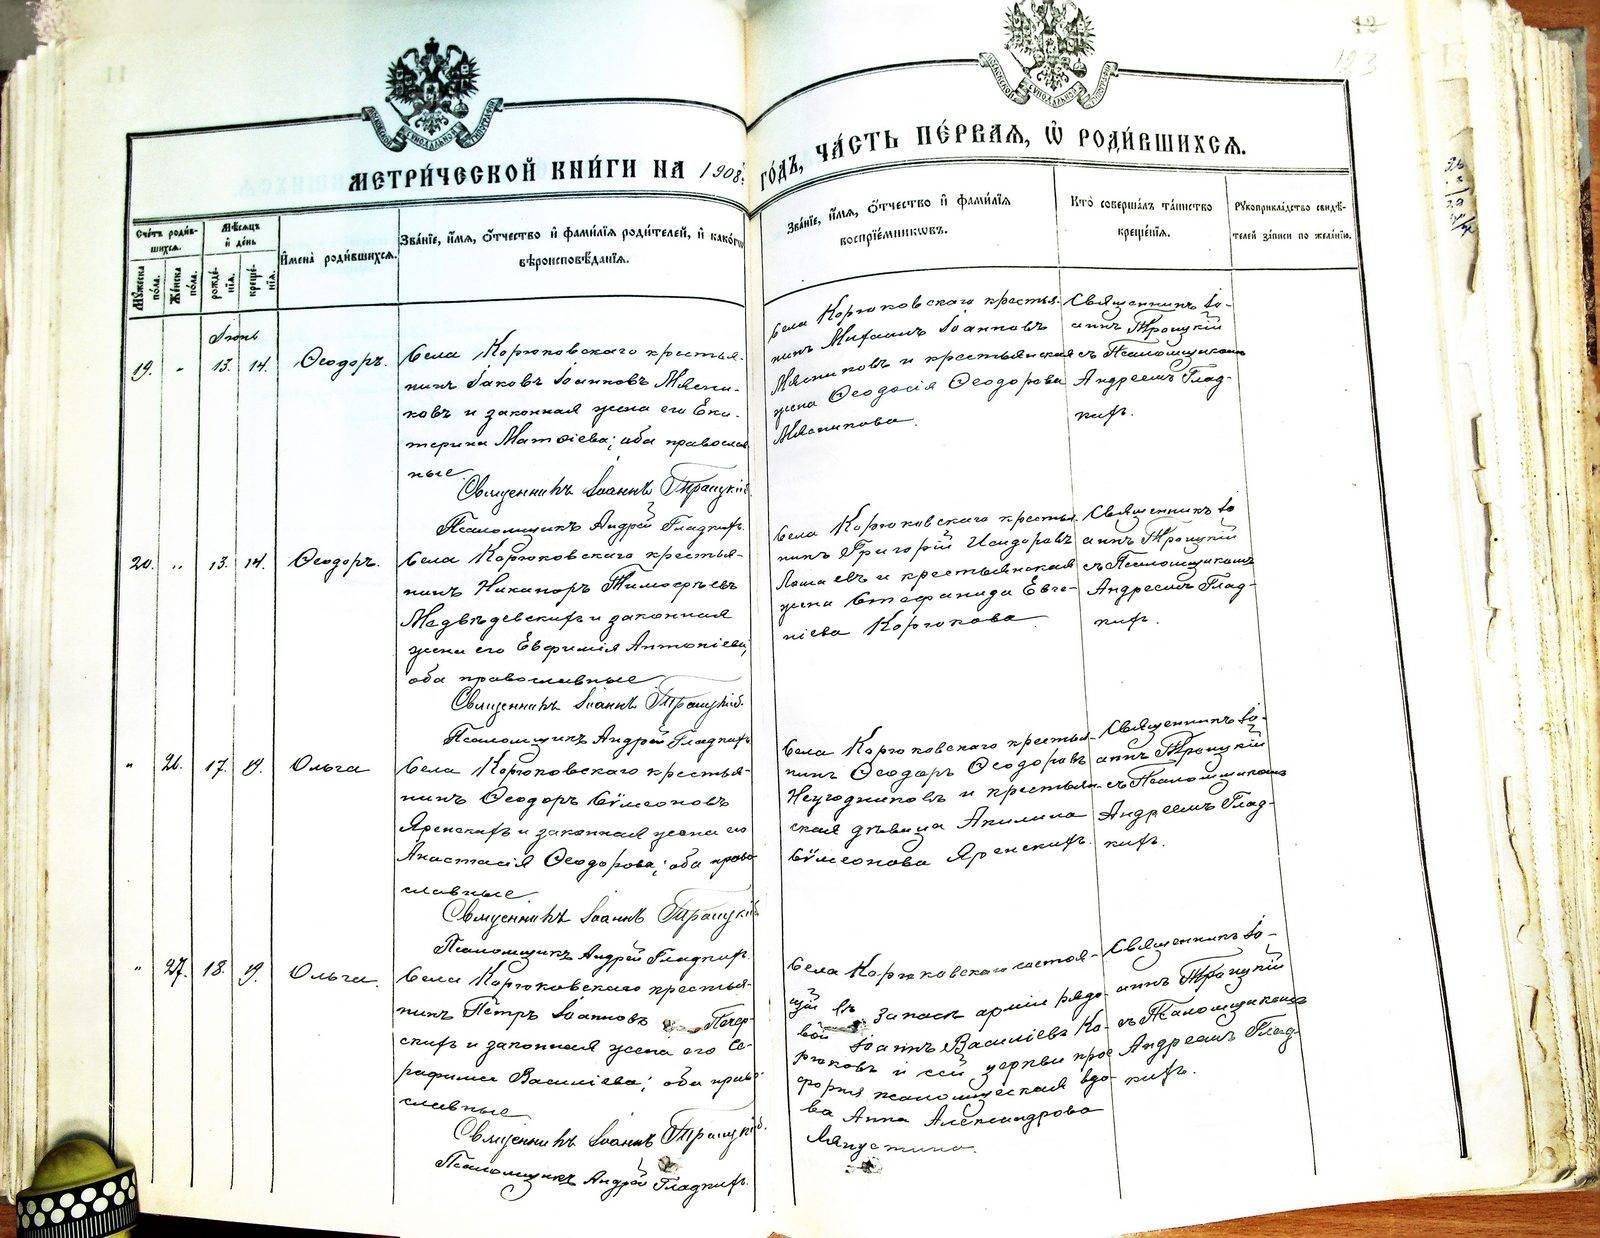 11
12
123
МОСКОВСКОЙ СѴНОДАЛЬНОЙ ТѴПОГРАФІИ
МОСКОВСКОЙ СѴНОДАЛЬНОЙ ТѴПОГРАФІИ
МЕТРИ́ЧЕСКОЙ КНИ́ГИ НА 1908 ГО́ДЪ, ЧА́СТЬ ПЕ́РВАЯ, Ѡ РОДИ́ВШИХСЯ.
Сче́тъ роди́в-
шихся.
Мѣ́сяцъ
и҆ де́нь
Мꙋ́жеска по́ла.
Же́нска по́ла.
рожде́-
нїя.
креще́-
нїя.
И҆мена̀ роди́вшихся.
Зва́нїе, и҆́мя, ѻ҆́тчество и҆ фами́лїя роди́телей, и҆ како́гѡ
вѣроисповѣ́данїя.
Зва́нїе, и҆́мя, ѻ҆́тчество и҆ фами́лїя
воспрїе́мникѡвъ.
Кто̀ соверша́лъ та́инство
креще́нїя.
Рꙋкоприкла́дство свидѣ́-
телей за́писи по жела́нїю.
Іюнь
19. " 13. 14. Ѳеодоръ.
Села Корюковскаго крестья-
нинъ Іаковъ Іоанновъ Мясни-
ковъ и законная жена его Ека-
терина Матѳіева; оба православ
ные.
Священникъ Іоаннъ Троицкій.
Псаломщикъ Андрей Гладкихъ.
Села Корюковскаго крестья-
нинъ Михаилъ Іоанновъ
Мясниковъ и крестьянская
жена Ѳеодосія Ѳеодорова
Мясникова.
Священникъ Іо-
аннъ Троицкій
съ Псаломщикомъ
Андреемъ Глад-
кихъ.
20. " 13. 14. Ѳеодоръ.
Села Корюковскаго крестья-
нинъ Никаноръ Тимоѳеевъ
Медвѣдевскихъ и законная
жена его Евфимія Антоніева;
оба православные.
Священникъ Іоаннъ Троицкій.
Псаломщикъ Андрей Гладкихъ
Села Корюковскаго крестья-
нинъ Григорій Исидоровъ
и крестьянская
жена Стефанида Евге-
ніева Корюкова.
Священникъ Іо-
аннъ Троицкій
съ Псаломщикомъ
Андреемъ Глад-
кихъ.
" 26. 17. 19. Ольга
Села Корюковскаго крестья-
нинъ Ѳеодоръ Сѵмеоновъ
Яренскихъ и законная жена его
Анастасія Ѳеодорова; оба право-
славные.
Священникъ Іоаннъ Троицкій
Псаломщикъ Андрей Гладкихъ.
Села Корюковскаго крестья-
нинъ Ѳеодоръ Ѳеодоровъ
Неугодниковъ и крестьян-
ская дѣвица Акилина
Сѵмеонова Яренскихъ.
Священникъ Іо-
аннъ Троицкій
съ Псаломщикомъ
Андреемъ Глад-
кихъ.
" 27. 18. 19. Ольга.
Села Корюковскаго крестья-
нинъ Пётръ Іоанновъ Печер-
скихъ и законная жена его Се-
рафима Василіева; оба право-
славные
Священникъ Іоаннъ Троицкій.
Псаломщикъ Андрей Гладкихъ.
Села Корюковскаго состоя-
щій въ запасѣ арміи рядо-
вой Іоаннъ Василіевъ Ко-
рюковъ и сей церкви прос
форня псаломщеская вдо-
ва Анна Александрова
Ляпустина.
Священникъ Іо-
аннъ Троицкій
съ Псаломщикомъ
Андреемъ Глад-
кихъ.